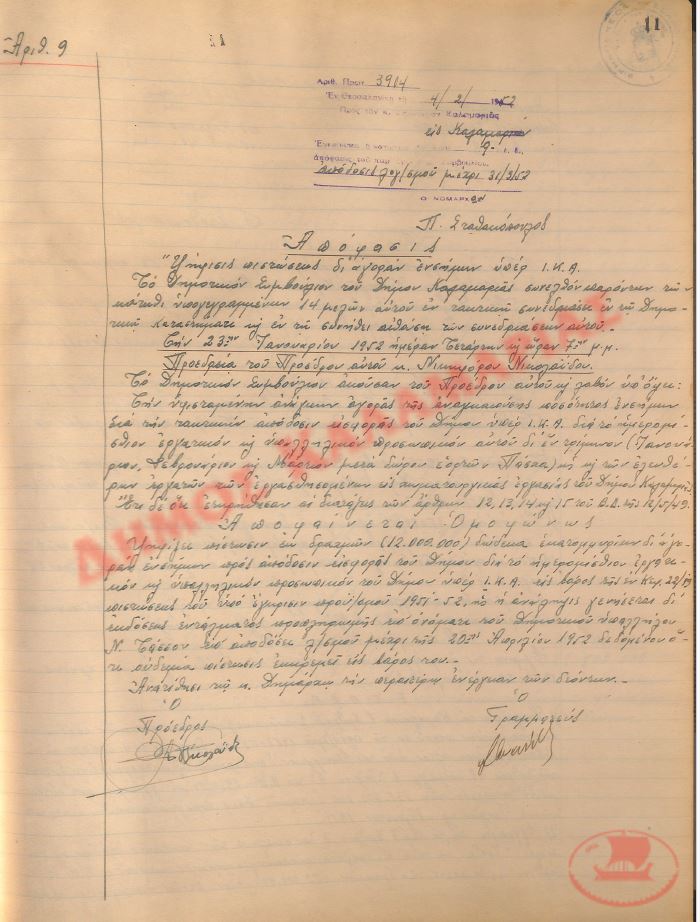 11
Ἀριθ. 9
Ἀριθ. Πρωτ. 3914
Ἐν Θεσσαλονίκῃ τῇ 4/2/1952
Πρὸς τὸν κ. Καλαμαριᾶς
εἰς Καλαμαριάν
9
ἀπόδοσις λογ/σμοῦ μέχρι 31/3/52
Ο ΝΟΜΑΡΧΗΣ
Π. Σταθακόπουλος
Ἀπόφασις
"Ψήφισις πιστώσεως δι' ἀγορὰν ἐνσήμων ὑπὲρ Ι.Κ.Α.
Τὸ Δημοτικὸν Συμβούλιον τοῦ Δήμου Καλαμαριᾶς συνελθὸν παρόντων τῶν
κάτωθι ὑπογεγραμμένων 14 μελῶν αὐτοῦ ἐν τακτικῇ συνεδριάσει ἐν τῷ Δημο-
τικῷ Καταστήματι κ ἐν τῇ συνήθει αἰθούσῃ τῶν συνεδριάσεων αὐτοῦ.
Τὴν 23ην Ἰανουαρίου 1952 ἡμέραν Τετάρτην κ ὥραν 7ην μ.μ.
Προεδρεία τοῦ Προέδρου αὐτοῦ κ. Νικηφόρου Νικολαΐδου.
Τὸ Δημοτικὸν Συμβούλιον ἀκοῦσαν τοῦ Προέδρου αὐτοῦ κ λαβὸν ὑπ' ὄψει:
Τὴν ὑφισταμένην ἀνάγκην ἀγορᾶς τῆς ἀναγκαιούσης ποσότητος ἐνσήμων
διὰ τὴν τακτικὴν ἀπόδοσιν εἰσφορᾶς τοῦ Δήμου ὑπὲρ Ι.Κ.Α. διὰ τὸ ἡμερομί-
σθιον ἐργατικὸν κ ὑπαλληλικὸν προσωπικὸν αὐτοῦ δι' ἓν τρίμηνον (Ἰανουά-
ριον, Φεβρουάριον κ Μάρτιον μετὰ δώρου ἑορτῶν Πάσχα) κ κ τῶν
ἐργατῶν τῶν ἐργασθησομένων εἰς ἐργασίας τοῦ Δήμου Καλαμαριᾶς
Ἔτι δὲ ὅτι ἐτηρήθησαν αἱ διατάξεις τῶν ἄρθρων 12, 13, 14 κ 15 τοῦ Β.Δ. τῆς 12/5/49.
Ἀποφαίνεται Ὁμοφώνως
Ψηφίζει πίστωσιν ἐκ δραχμῶν (12.000.000) δώδεκα ἑκατομμυρίων δι' ἀγο-
ρὰν ἐνσήμων πρὸς ἀπόδοσιν εἰσφορᾶς τοῦ Δήμου διὰ τὸ ἡμερομίσθιον ἐργα-
τικὸν κ ὑπαλληλικὸν προσωπικὸν τοῦ Δήμου ὑπὲρ Ι.Κ.Α. εἰς βάρος τῆς ἐν Κεφ. 22
πιστώσεως τοῦ ὑπὸ ἔγκρισιν προϋ/σμοῦ 1951-52, ἧς ἡ ἀνάληψις γενήσεται δι'
ἐκδόσεως ἐντάλματος προπληρωμῆς ἐπ' ὀνόματι τοῦ Δημοτικοῦ ὑπαλλήλου
Ν. Τάσσου ἐπὶ ἀποδόσει λ/σμοῦ μέχρι τῆς 20ης Ἀπριλίου 1952 δεδομένου ὅ-
τι οὐδεμία πίστωσις ἐκκρεμεῖ εἰς βάρος του.-
Ἀνατίθησι τῷ κ. Δημάρχῳ τὴν περαιτέρω ἐνέργειαν τῶν δεόντων.-
Ὁ Ὁ
Πρόεδρος Γραμματεὺς
ΔΗΜΟΣ ΚΑΛΑΜΑΡΙΑΣ